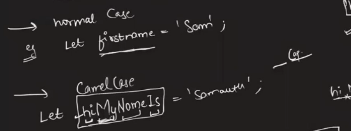 → normal Case
eg Let firstname = 'Som';
Cas
→ CamelCase
Let hiMyNameIs = 'Somauth';
hi M